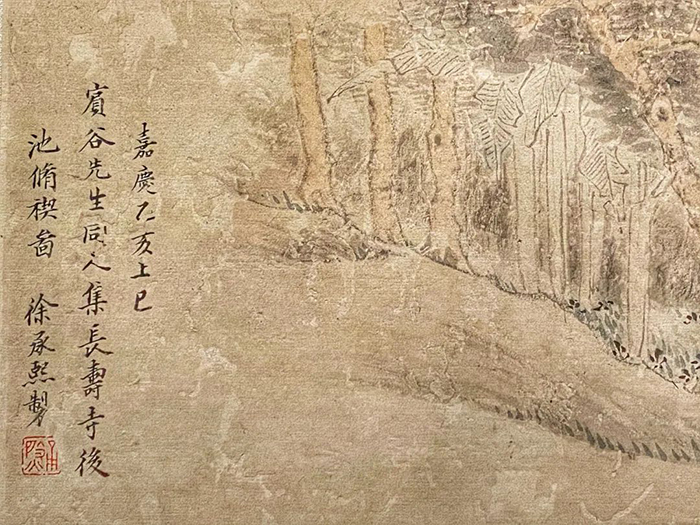 嘉慶乙亥上巳
賓谷先生同人集長壽寺後
池脩禊啚 徐承熙製